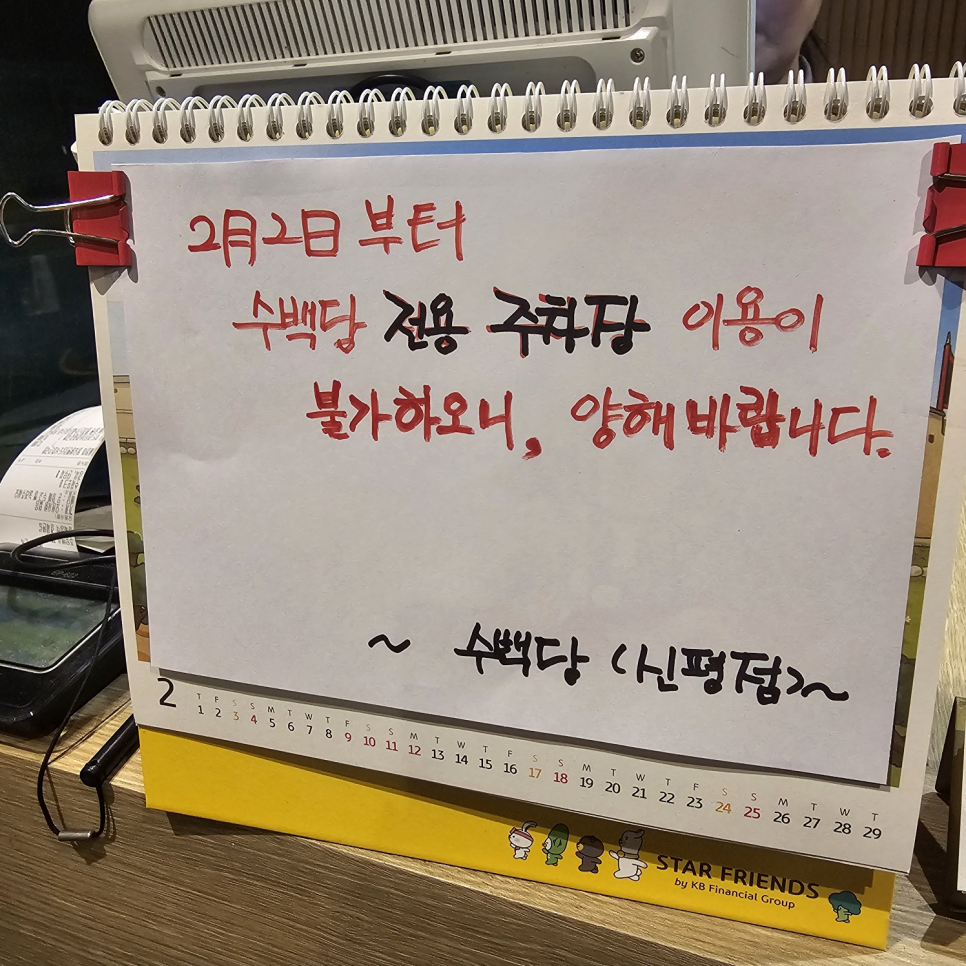 2月2日 부터
수백당 전용 주차장 이용이
불가하오니, 양해바랍니다.
~ 수백당 <신평점>~
2
T F S S M T W T F S S M T W T F S S M T W T F S S M T W T
1 2 3 4 5 6 7 8 9 10 11 12 13 14 15 16 17 18 19 20 21 22 23 24 25 26 27 28 29
STAR FRIENDS
by KB Financial Group